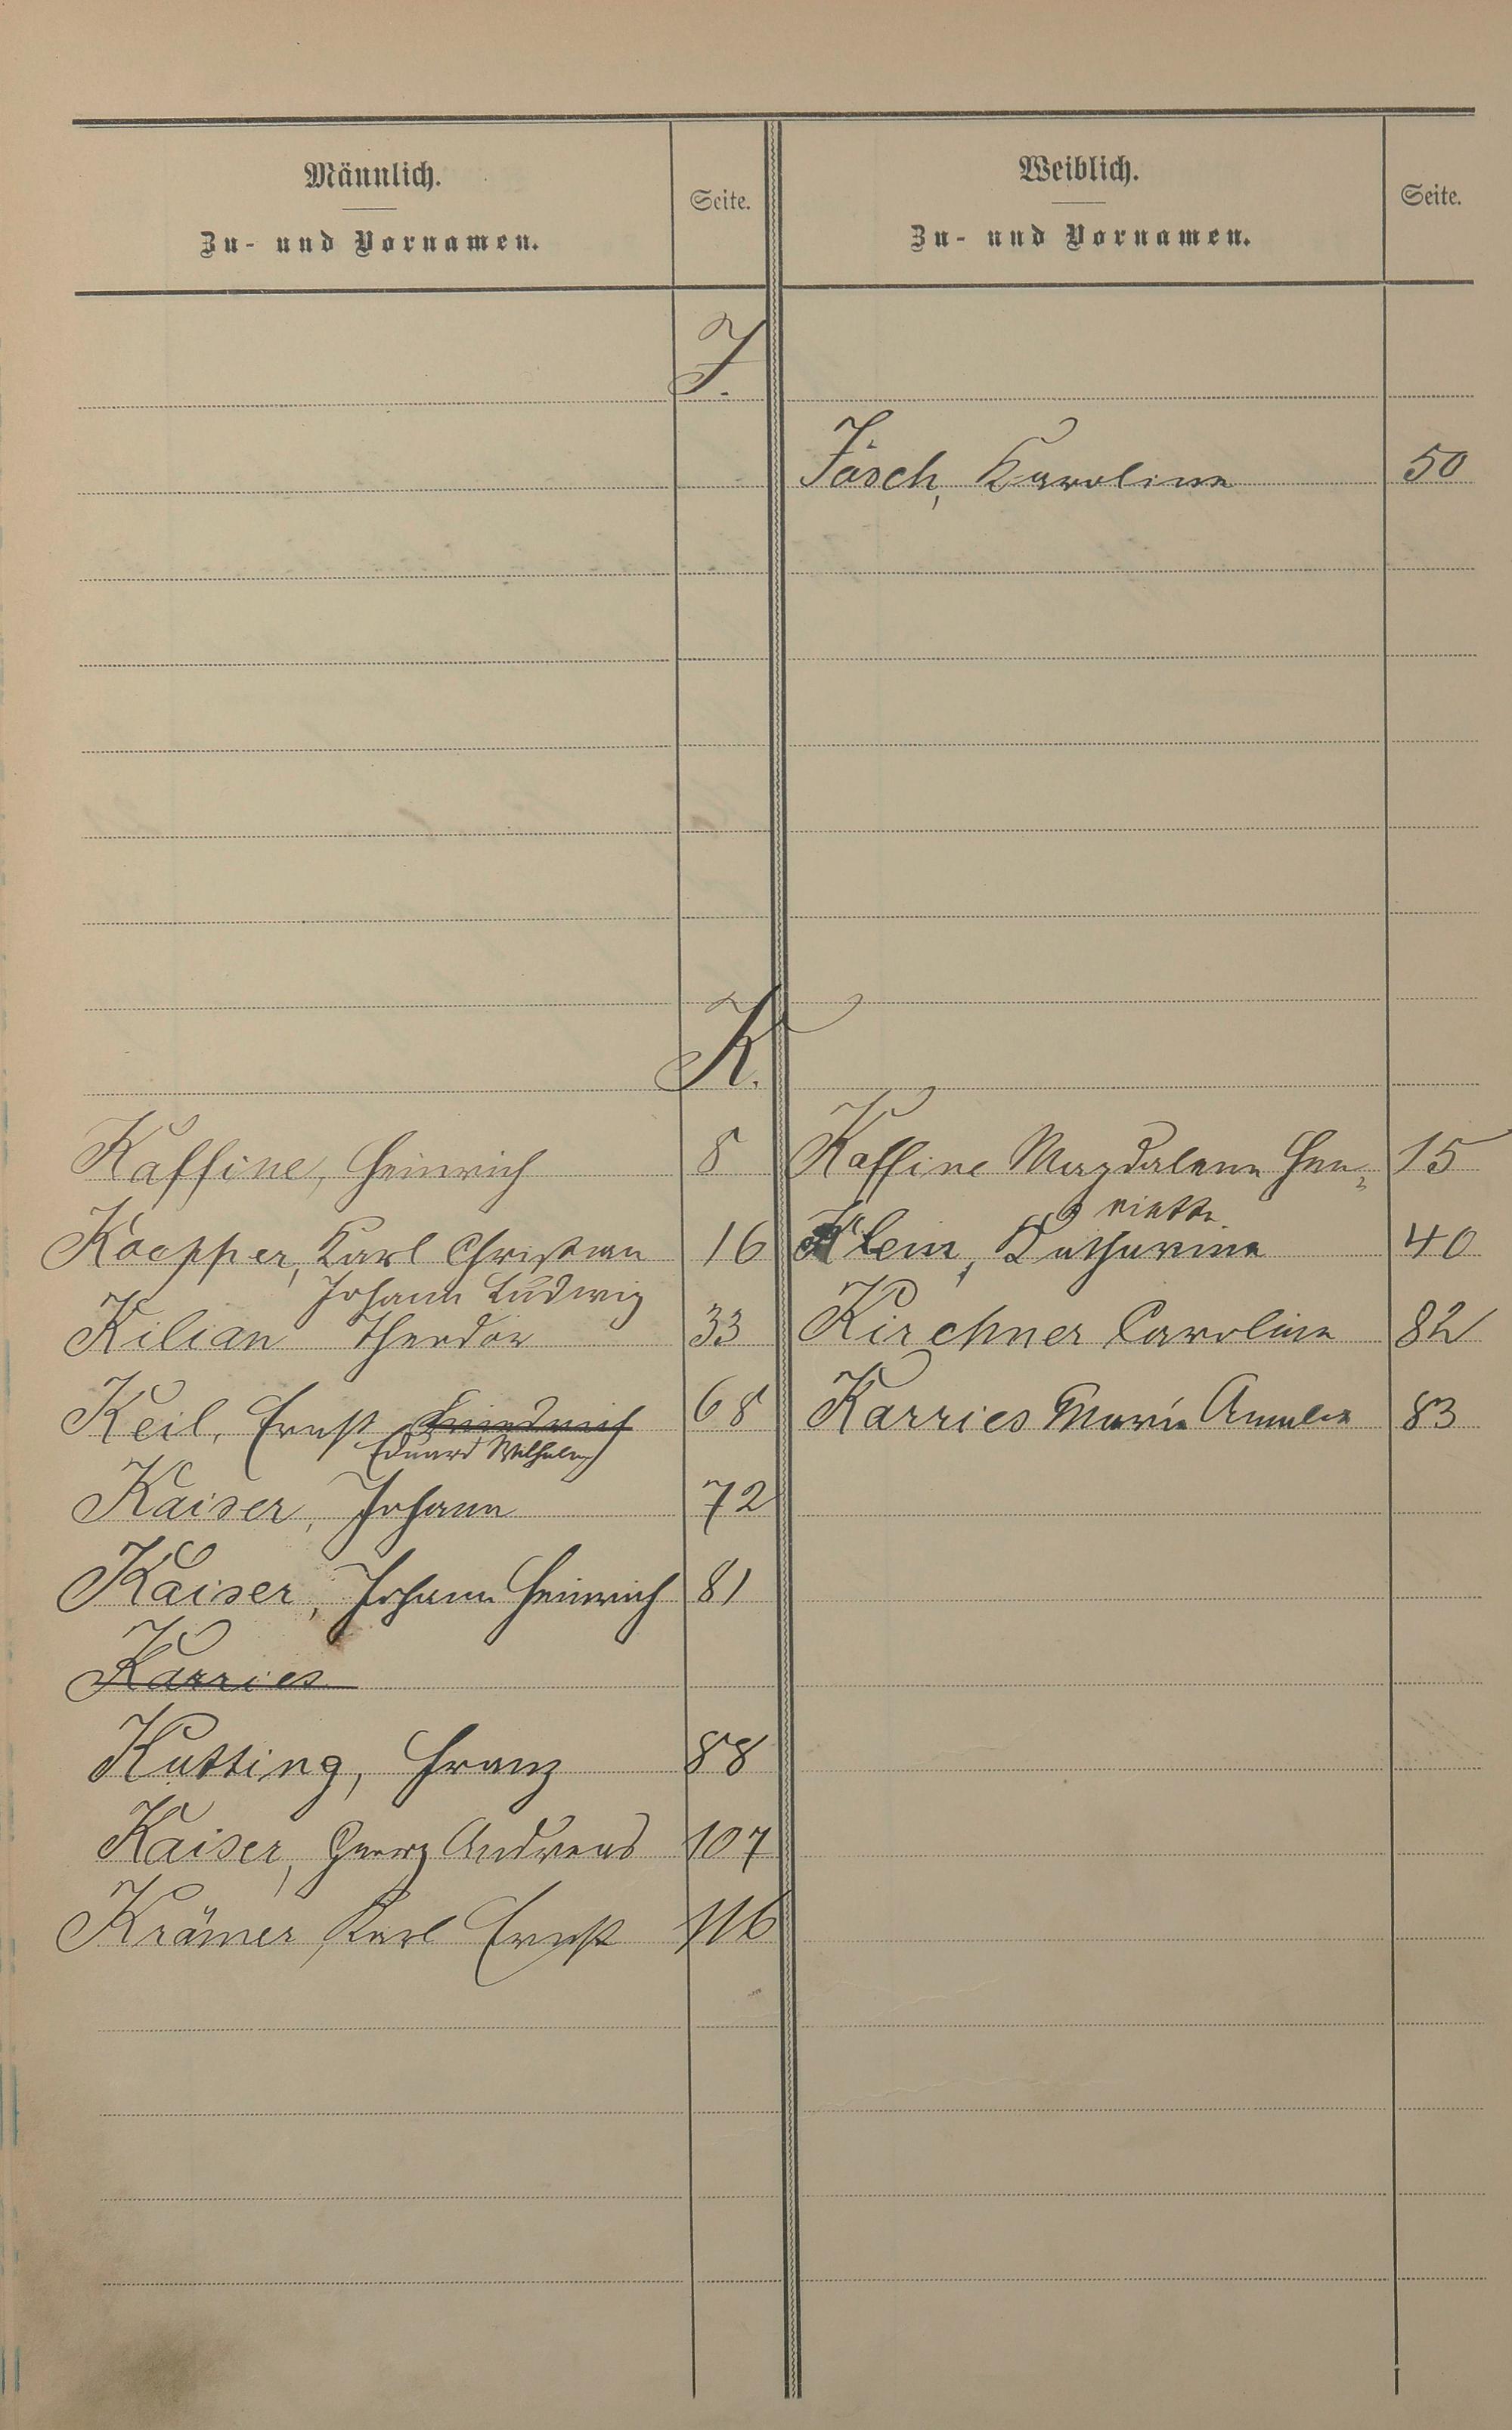 Männlich.
Zu- und Vornamen.
Seite.
Weiblich.
Zu- und Vornamen.
Seite.
J.
Jäsch, Karoline 50
K.
Kaffine, Heinrich 8
Kaffine Magdalena Hen- 15
riette.
Koepper, Karl Christian 16
Johann Ludwig
Klein, Katharina 40
Kilian Theodor 33
Kirchner Caroline 82
Keil, Ernst Friedrich 68
Eduard Wilhelm
Karries Marie Amalie 83
Kaiser, Johann 72
Kaiser, Johann Heinrich 81
Karries
Kutting, Franz 88
Kaiser, Georg Andreas 107
Krämer, Karl Ernst 116